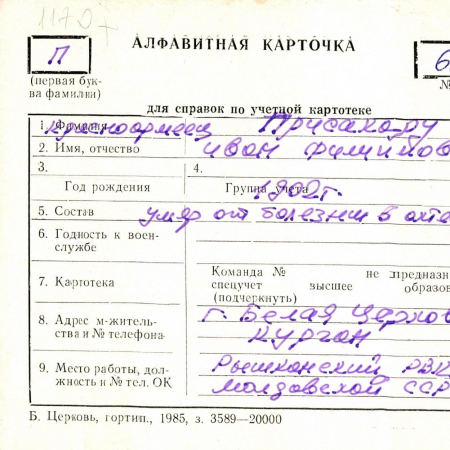 1170т
П
АЛФАВИТНАЯ КАРТОЧКА
6
(первая бук-
ва фамилии)
№
для справок по учетной картотеке
1. Фамилия красноармеец Присакару
2. Имя, отчество иван Филимов
3. 4.
Год рождения Группа учета 1902г.
5. Состав умер от болезни в окт
6. Годность к воен-
службе
7. Картотека
Команда № не предназн
спецучет высшее образов
(подчеркнуть)
8. Адрес м-житель-
ства и № телефона
г. Белая Церков
курган
9. Место работы, дол-
жность и № тел. ОК
Рышканский РВК
Молдовской ССР
Б. Церковь, гортип., 1985, з. 3589—20000